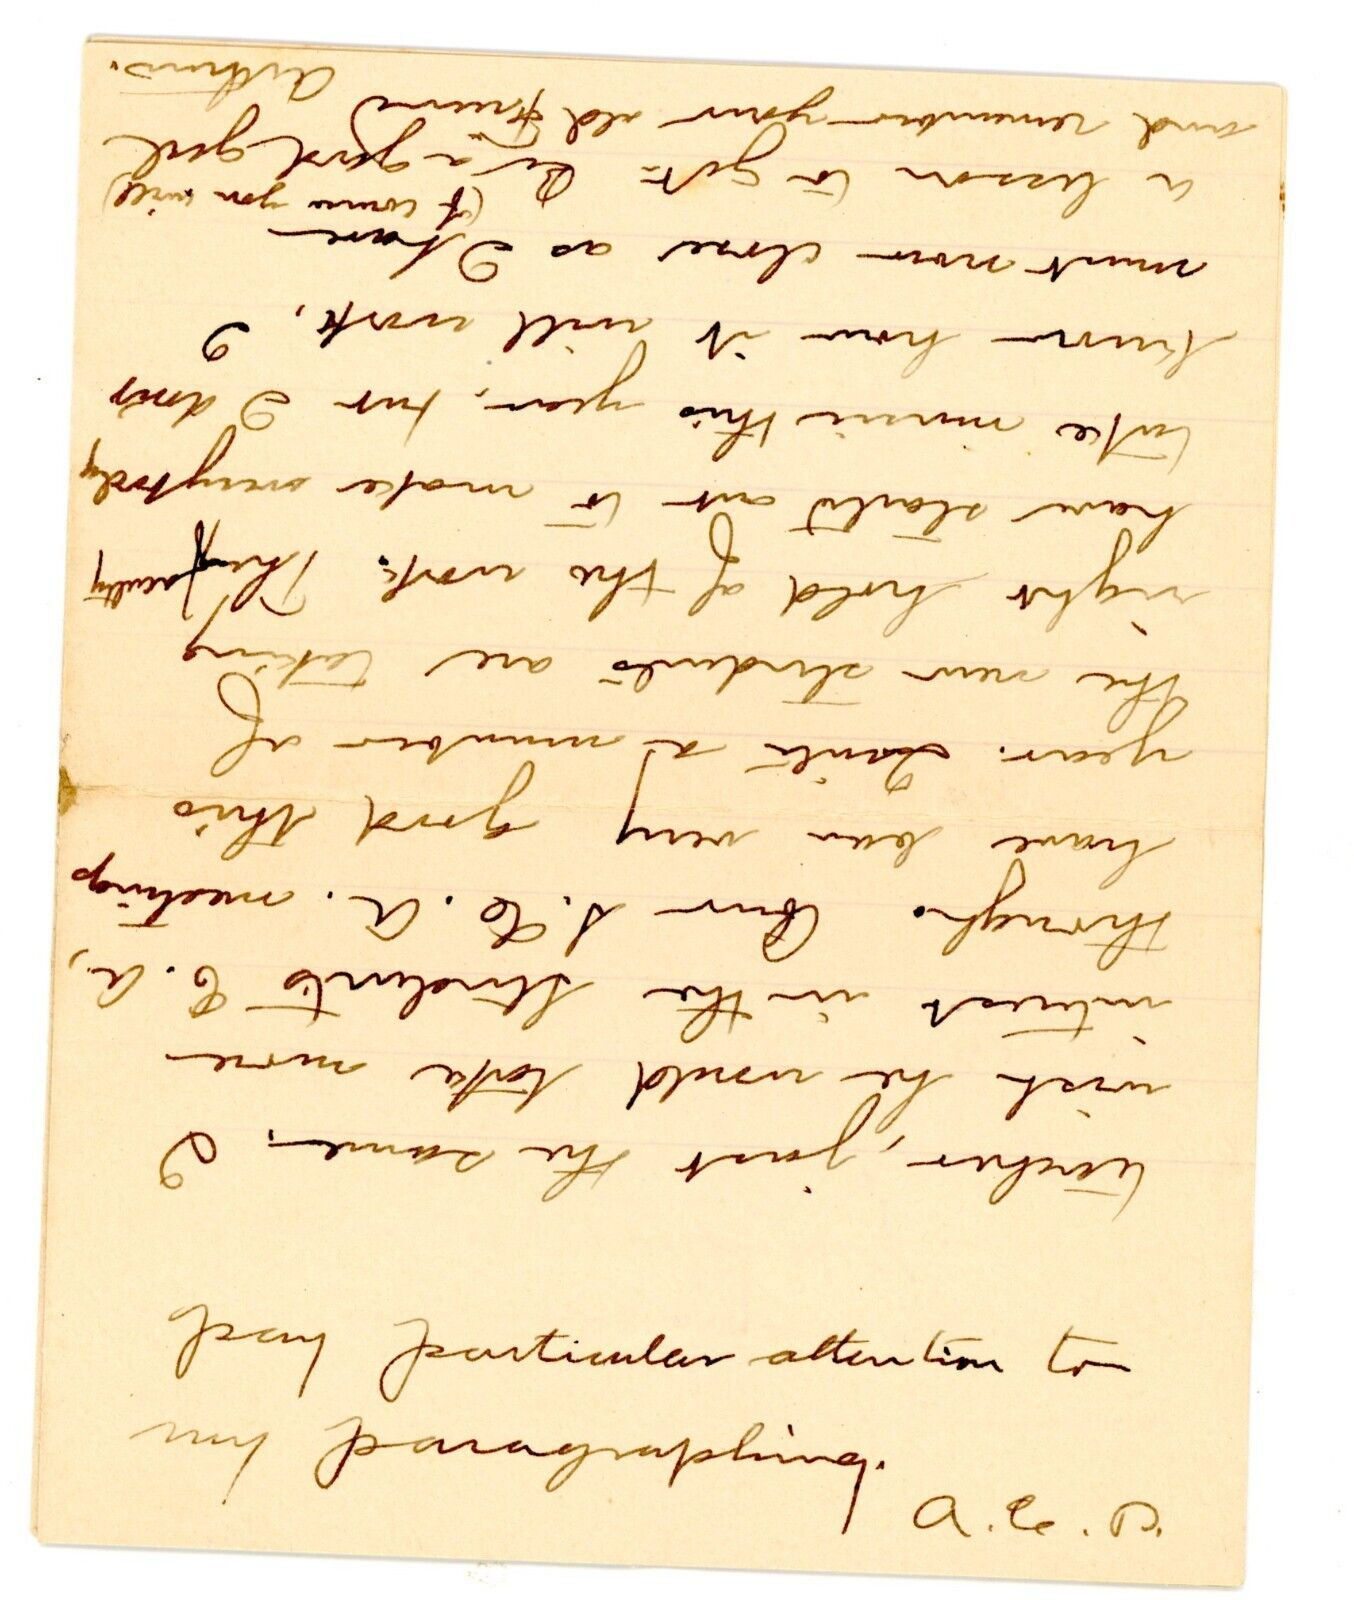 particular attention to
teacher, just the same. I
wish he would take more
interest in the Students C. A.,
though. Our S. C. A. meetings
have been very good this
year. Quite a number of
the new students are taking
right hold of the work. The faculty
have started out to make everybody
take music this year, but I don't
know how it will work. I
must now close as I have
(of course you will)
a lesson to get. Be a good girl
and remember your old friend
Arthur.